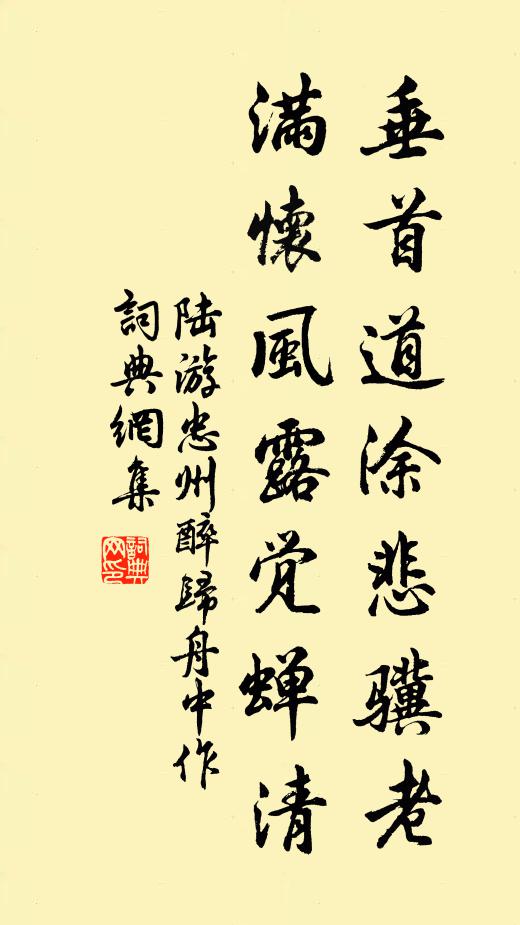 垂首道涂悲骥老
滿懷風露觉蝉清
陆游忠州醉歸舟中作
詞典網集
詞典网印